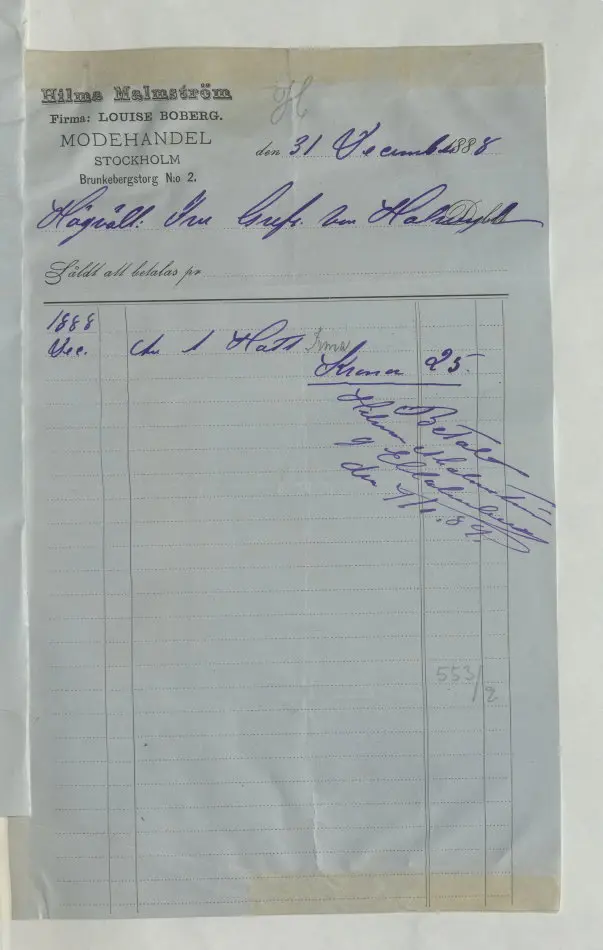 H
Hilma Malmström
Firma: LOUISE BOBERG.
MODEHANDEL
STOCKHOLM
Brunkebergstorg N:o 2.
den 31 December 1888
Högvälb: Fru Grefv. von Hallwyl
Debet
Såldt att betalas pr
1888
Dec. 1 Hatt Irma
Kronor 25.
Betalt
Hilma Malmström
g
den 7/1.89.
553/2